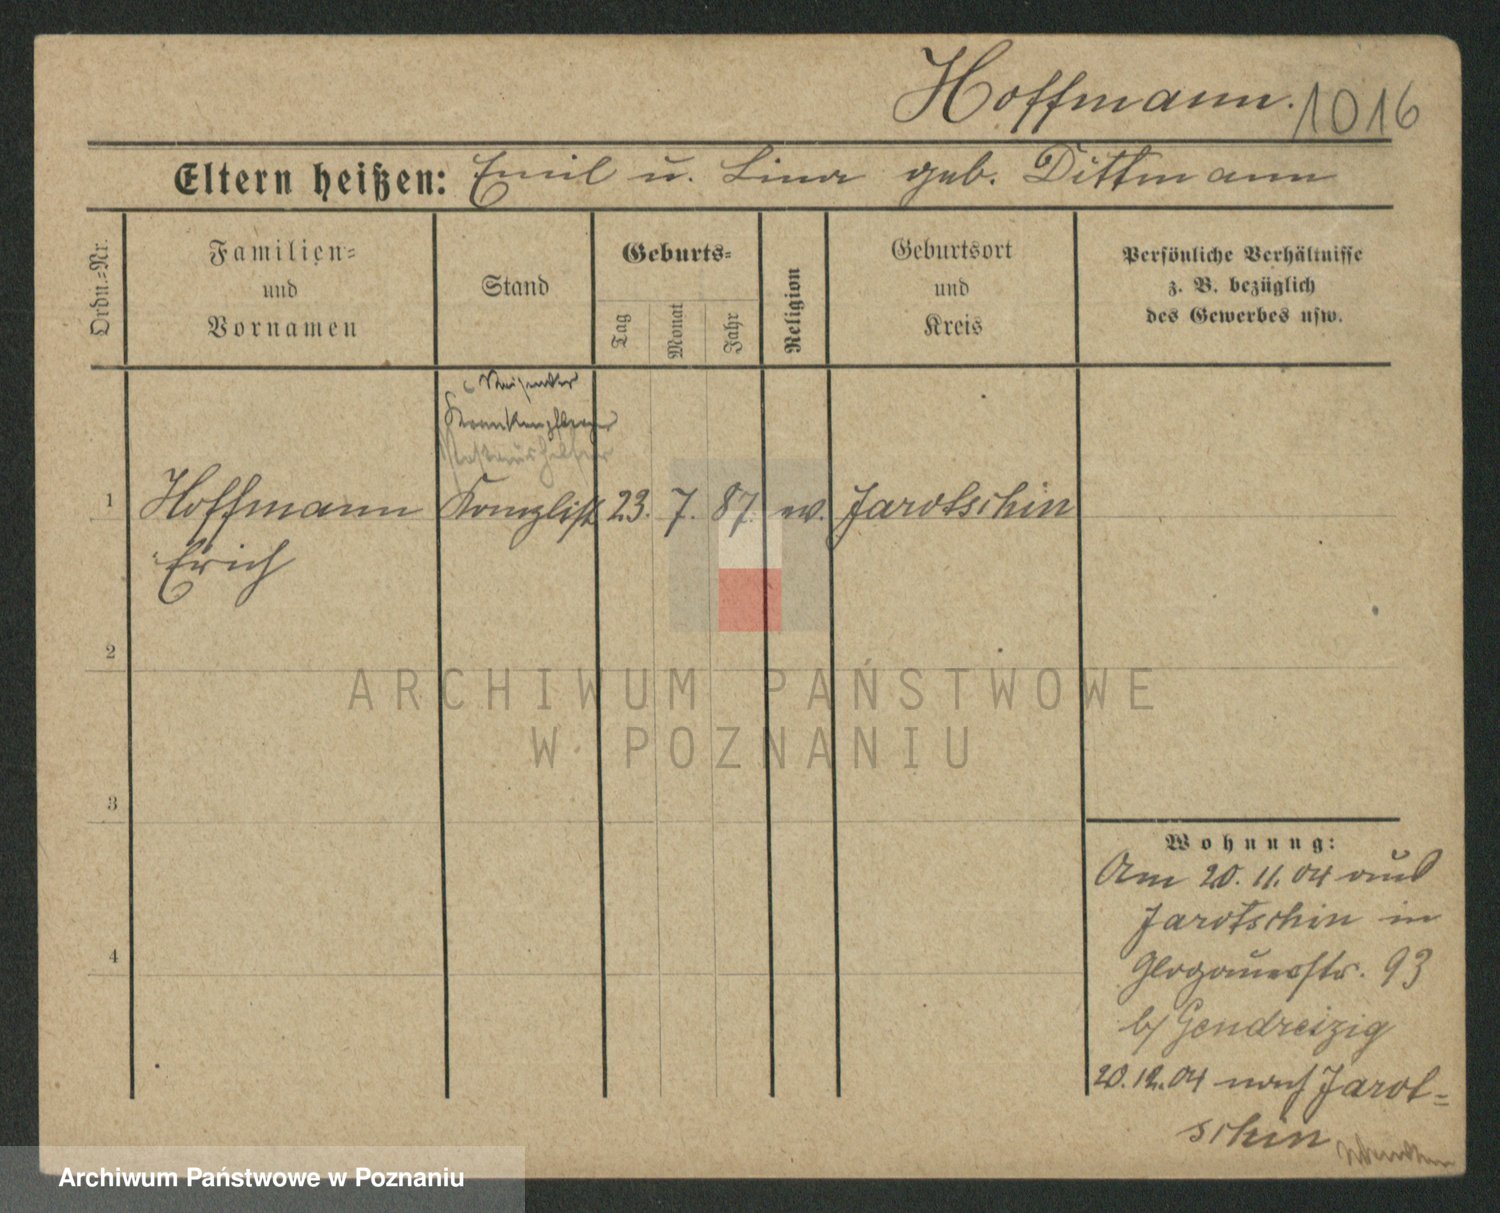 Hoffmann. 1016
Eltern heißen: Emil u. Lina geb. Dittmann
Ordn.-Nr.
Familien-
und
Vornamen
Stand
Geburts-
Tag
Monat
Jahr
Religion
Geburtsort
und
Kreis
Persönliche Verhältnisse
z. B. bezüglich
des Gewerbes usw.
Reisender
Krankenpfleger
1 Hoffmann Kanzlist 23. 7. 87. ev. Jarotschin
Erich
2
3
4
Wohnung:
Am 20. 11. 04 aus
Jarotschin in
Glogauerstr. 93
b/ Gendreizig
20.12.04 nach Jarot-
schin
ARCHIWUM PAŃSTWOWE
W POZNANIU
Archiwum Państwowe w Poznaniu